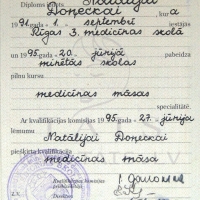 Diploms izsniegts Natālijai
Doņeckai , kas
1991. gada 1. septembrī iestājās
Rīgas 3. medicīnas skolā
un 1995. gada 20. jūnijā pabeidza
minētās skolas
pilnu kursu
medicīnas māsas
specialitātē.
Ar kvalifikācijas komisijas 1995. gada 27. jūnija
lēmumu
Natālijai Doņeckai
piešķirta kvalifikācija
medicīnas māsa
Kvalifikācijas komisijas
priekšsēdētājs
Z.V.